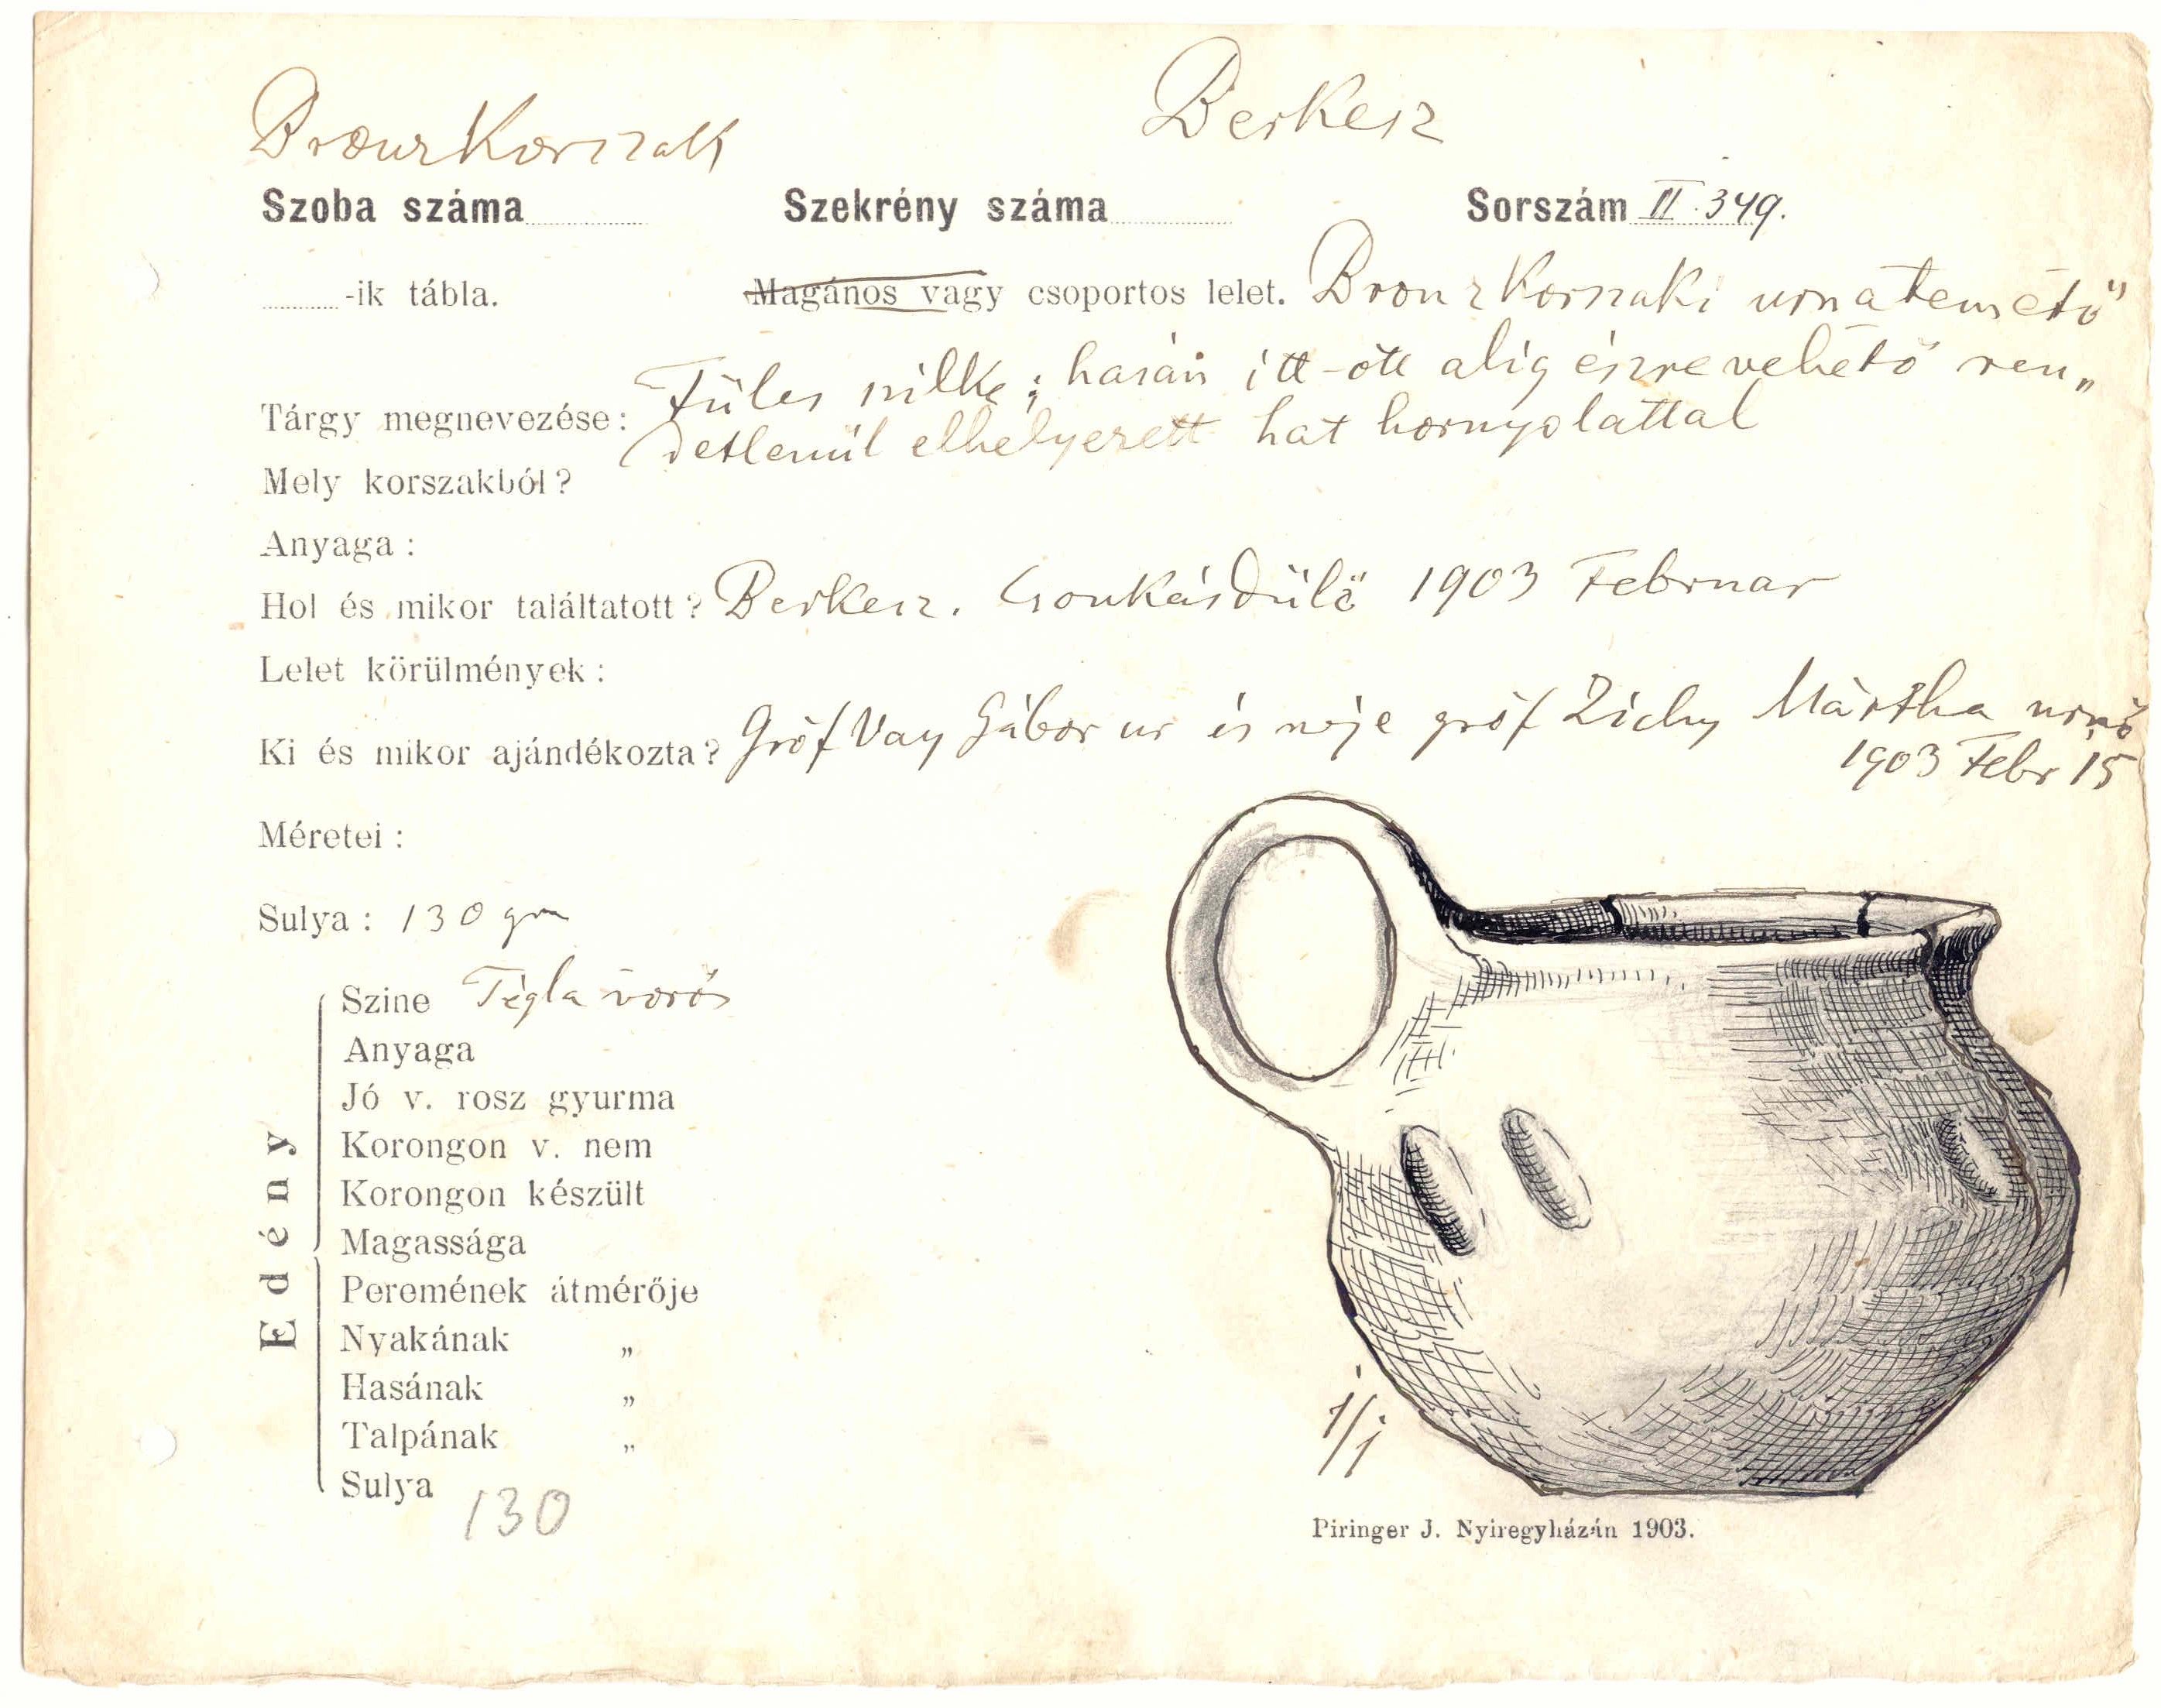 Bronzkorszak
Berkesz
Szoba száma Szekrény száma Sorszám II. 349.
-ik tábla. Magános vagy csoportos lelet. Bronzkorszaki urnatemető
Tárgy megnevezése: Füles silke; hasán itt-ott alig észrevehető ren„
detlenül elhelyezett hat hornyolattal
Mely korszakból?
Anyaga:
Hol és mikor találtatott? Berkesz. Csonkásdülő 1903 Februar
Lelet körülmények:
Ki és mikor ajándékozta? Gróf Vay Gábor ur és neje gróf Zichy Mártha urnő
1903 Febr 15
Méretei:
Sulya: 130 gm
Edény
Szine Tégla vörös
Anyaga
Jó v. rosz gyurma
Korongon v. nem
Korongon készült
Magassága
Peremének átmérője
Nyakának „
Hasának „
Talpának „
Sulya 130
1/1
Piringer J. Nyiregyházán 1903.